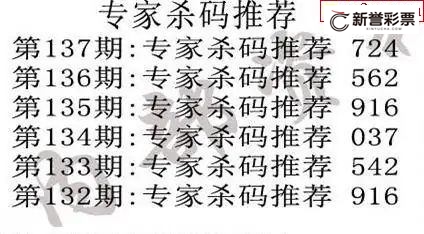 专家杀码推荐
新誉彩票
XINYUCMS.COM
第137期:专家杀码推荐 724
第136期:专家杀码推荐 562
第135期:专家杀码推荐 916
第134期:专家杀码推荐 037
第133期:专家杀码推荐 542
第132期:专家杀码推荐 916